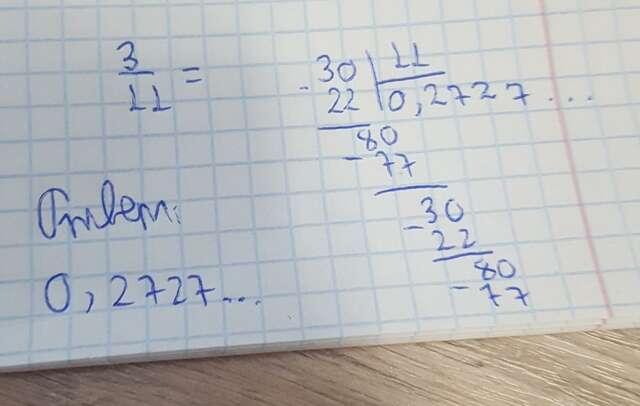 3/11 =
30 | 11
- 22 | 0,2727...
80
- 77
- 30
22
80
- 77
Ответ:
0,2727...